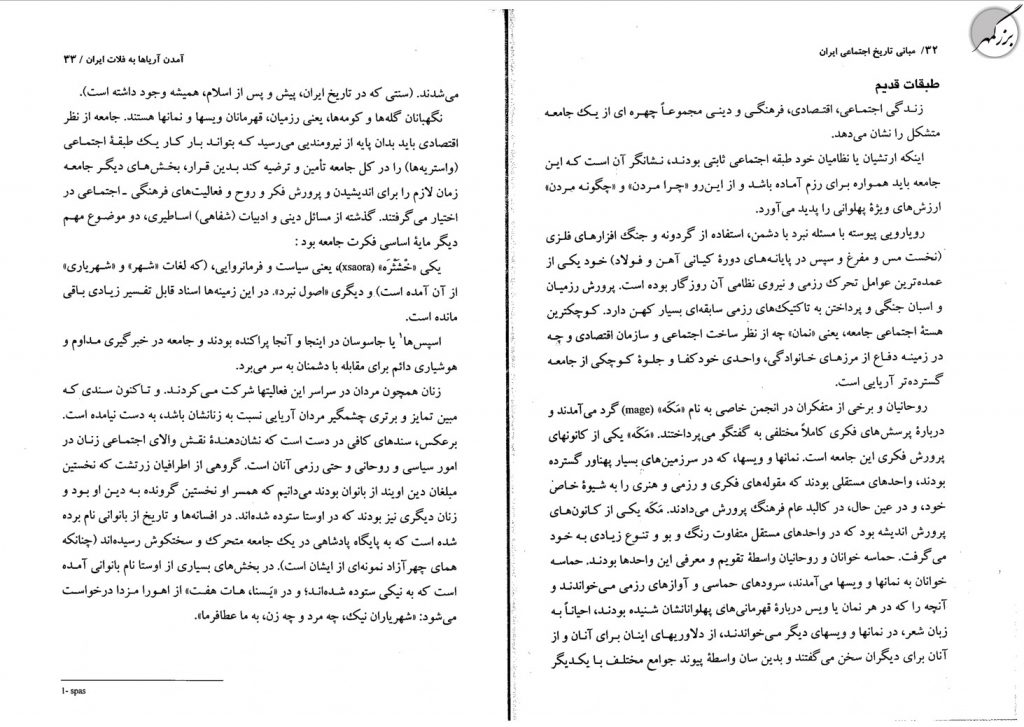 بزرگمهر
۳۲/ مبانی تاریخ اجتماعی ایران
طبقات قدیم
زندگی اجتماعی، اقتصادی، فرهنگی و دینی مجموعاً چهره ای از یک جامعه
متشکل را نشان می‌دهد.
اینکه ارتشیان یا نظامیان خود طبقه اجتماعی ثابتی بودند، نشانگر آن است که این
جامعه باید همواره برای رزم آماده باشد و از این‌رو «چرا مردن» و «چگونه مردن»
ارزش‌های ویژهٔ پهلوانی را پدید می‌آورد.
رویارویی پیوسته با مسئله نبرد با دشمن، استفاده از گردونه و جنگ افزارهای فلزی
(نخست مس و مفرغ و سپس در پایانه‌های دورهٔ کیانی آهن و فولاد) خود یکی از
عمده‌ترین عوامل تحرک رزمی و نیروی نظامی آن روزگار بوده است. پرورش رزمیان
و اسبان جنگی و پرداختن به تاکتیک‌های رزمی سابقه‌ای بسیار کهن دارد. کوچکترین
هستهٔ اجتماعی جامعه، یعنی «نمان» چه از نظر ساخت اجتماعی و سازمان اقتصادی و چه
در زمینه دفاع از مرزهای خانوادگی، واحدی خودکفا و جلوهٔ کوچکی از جامعه
گسترده‌تر آریایی است.
روحانیان و برخی از متفکران در انجمن خاصی به نام «مَکَه» (mage) گرد می‌آمدند و
دربارهٔ پرسش‌های فکری کاملاً مختلفی به گفتگو می‌پرداختند. «مَکَه» یکی از کانونهای
پرورش فکری این جامعه است. نمانها و ویسها، که در سرزمین‌های بسیار پهناور گسترده
بودند، واحدهای مستقلی بودند که مقوله‌های فکری و رزمی و هنری را به شیوهٔ خاص
خود، و در عین حال، در کالبد عام فرهنگ پرورش می‌دادند. مَکَه یکی از کانون‌های
پرورش اندیشه بود که در واحدهای مستقل متفاوت رنگ و بو و تنوع زیادی به خود
می‌گرفت. حماسه خوانان و روحانیان واسطهٔ تقویم و معرفی این واحدها بودند. حماسه
خوانان به نمانها و ویسها می‌آمدند، سرودهای حماسی و آوازهای رزمی می‌خواندند و
آنچه را که در هر نمان یا ویس دربارهٔ قهرمانی‌های پهلوانانشان شنیده بودند، احیاناً به
زبان شعر، در نمانها و ویسهای دیگر می‌خواندند، از دلاوریهای اینان برای آنان و از
آنان برای دیگران سخن می‌گفتند و بدین سان واسطهٔ پیوند جوامع مختلف با یکدیگر
آمدن آریاها به فلات ایران / ۳۳
می‌شدند. (سنتی که در تاریخ ایران، پیش و پس از اسلام، همیشه وجود داشته است).
نگهبانان گله‌ها و کومه‌ها، یعنی رزمیان، قهرمانان ویسها و نمانها هستند. جامعه از نظر
اقتصادی باید بدان پایه از نیرومندیی می‌رسید که بتواند بار کار یک طبقهٔ اجتماعی
(واستریه‌ها) را در کل جامعه تأمین و ترضیه کند بدین قرار، بخش‌های دیگر جامعه
زمان لازم را برای اندیشیدن و پرورش فکر و روح و فعالیت‌های فرهنگی ـ اجتماعی در
اختیار می‌گرفتند. گذشته از مسائل دینی و ادبیات (شفاهی) اساطیری، دو موضوع مهم
دیگر مایهٔ اساسی فکرت جامعه بود :
یکی «خْشَثْرَه» (xsaora)، یعنی سیاست و فرمانروایی، (که لغات «شهر» و «شهریاری»
از آن آمده است) و دیگری «اصول نبرد». در این زمینه‌ها اسناد قابل تفسیر زیادی باقی
مانده است.
اسپس‌ها۱ یا جاسوسان در اینجا و آنجا پراکنده بودند و جامعه در خبرگیری مداوم و
هوشیاری دائم برای مقابله با دشمنان به سر می‌برد.
زنان همچون مردان در سراسر این فعالیتها شرکت می‌کردند. و تاکنون سندی که
مبین تمایز و برتری چشمگیر مردان آریایی نسبت به زنانشان باشد، به دست نیامده است.
برعکس، سندهای کافی در دست است که نشان‌دهندهٔ نقش والای اجتماعی زنان در
امور سیاسی و روحانی و حتی رزمی آنان است. گروهی از اطرافیان زرتشت که نخستین
مبلغان دین اویند از بانوان بودند می‌دانیم که همسر او نخستین گرونده به دین او بود و
زنان دیگری نیز بودند که در اوستا ستوده شده‌اند. در افسانه‌ها و تاریخ از بانوانی نام برده
شده است که به پایگاه پادشاهی در یک جامعه متحرک و سختکوش رسیده‌اند (چنانکه
همای چهرآزاد نمونه‌ای از ایشان است). در بخش‌های بسیاری از اوستا نام بانوانی آمده
است که به نیکی ستوده شده‌اند؛ و در «یَسنا، هات هفت» از اهورا مزدا درخواست
می‌شود: «شهریاران نیک، چه مرد و چه زن، به ما عطافرما».
1- spas